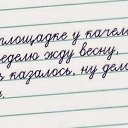 площадке у качел
неделю жду весну,
казалось, ну дел